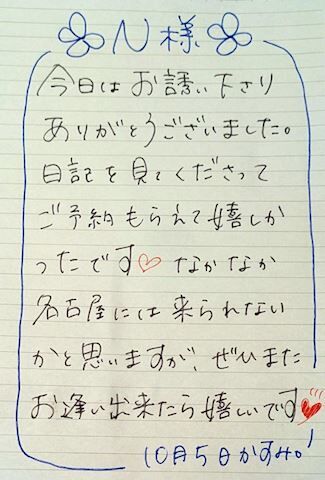 N様
今日はお誘い下さり
ありがとうございました。
日記を見てくださって
ご予約もらえて嬉しか
ったです♡なかなか
名古屋には来られない
かと思いますが、ぜひまた
お逢い出来たら嬉しいです♥
10月5日かすみ。